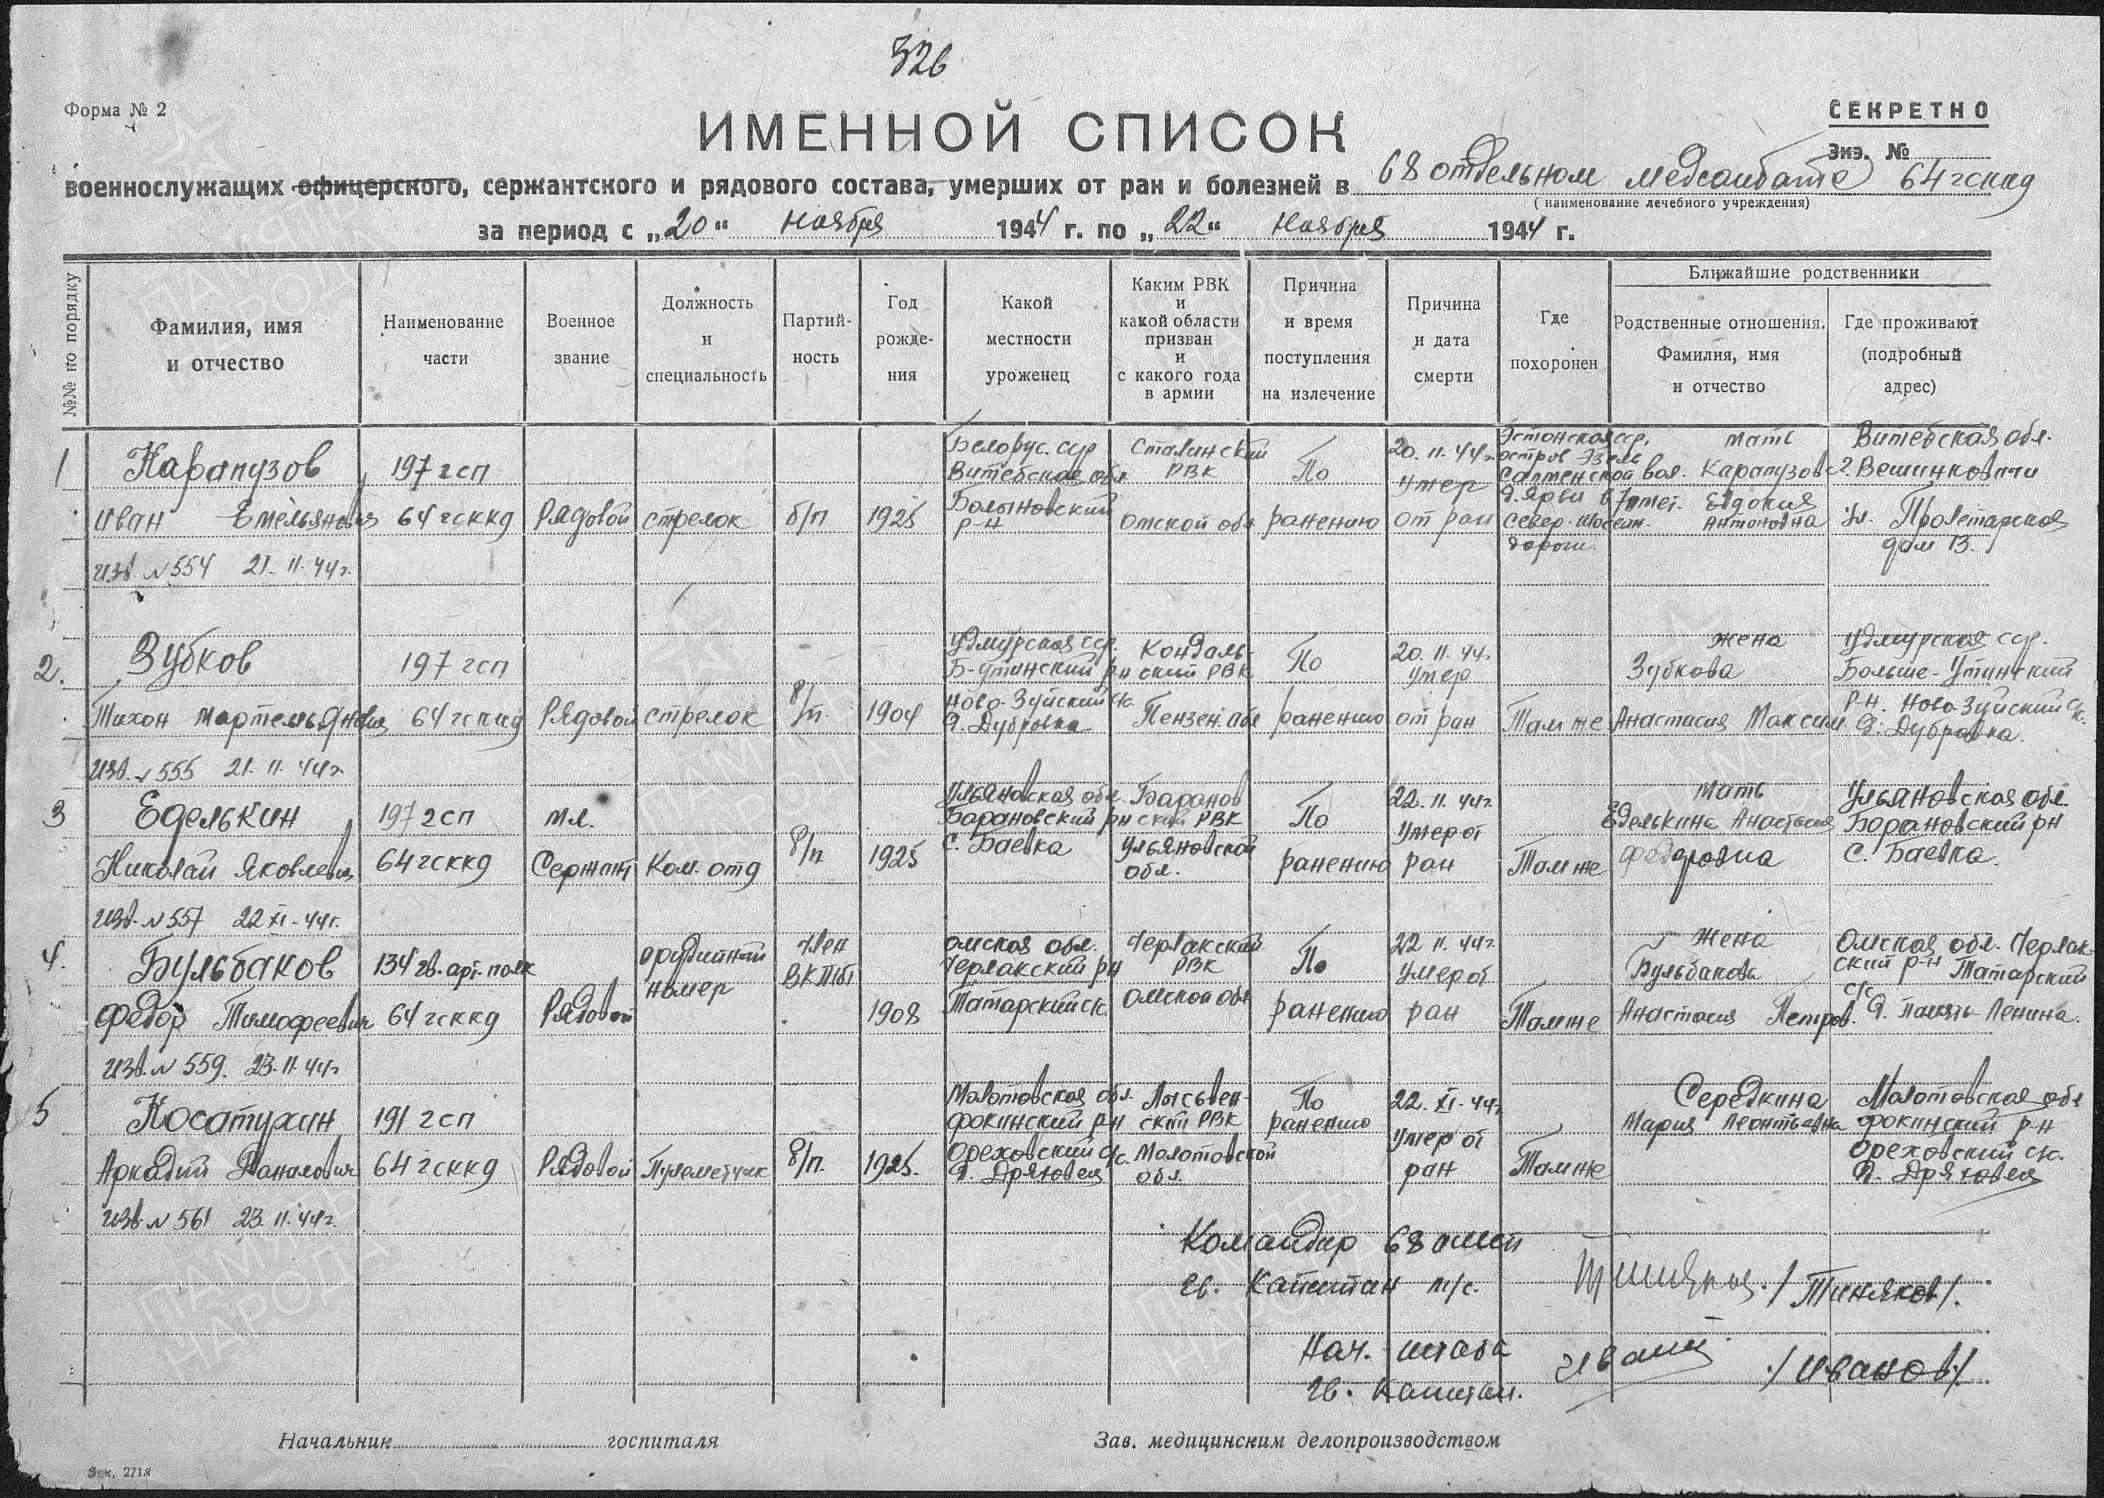 326
Форма № 2
СЕКРЕТНО
ИМЕННОЙ СПИСОК
Экз. №
военнослужащих офицерского, сержантского и рядового состава, умерших от ран и болезней в 68 отдельном медсанбате 64 гсккд
(наименование лечебного учреждения)
за период с „20“ ноября 1944 г. по „22“ ноября 1944 г.
№№ по порядку
Фамилия, имя и отчество
Наименование части
Военное звание
Должность и специальность
Партийность
Год рождения
Какой местности уроженец
Каким РВК и какой области призван и с какого года в армии
Причина и время поступления на излечение
Причина и дата смерти
Где похоронен
Ближайшие родственники
Родственные отношения. Фамилия, имя и отчество
Где проживают (подробный адрес)
1 Карапузов 197 гсп Белорус. сср Витебская обл. Сталинский РВК По 20.11.44г. умер Эстонская сср, остров Эзель мать Карапузова Витебская обл. г. Бешинковичи
Иван Емельянович 64 гсккд Рядовой стрелок б/п 1925 р-н Омской обл ранению от ран Север. дороги. Евдокия Антоновна ул. Пролетарская дом 13.
изв №554 21.11.44г.
2. Зубков 197 гсп Удмурская сср. Б-Утинский рн Кондальский РВК По 20.11.44г. умер жена Зубкова Удмурская сср. Больше-Утинский
Тихон 64 гсккд Рядовой стрелок б/п. 1904 Ново-Зуйский с/с. д. Дубровка Пензен. обл ранению от ран Там же Анастасия Максим. р-н. Ново-Зуйский с/с. д. Дубровка.
изв. №555 21.11.44г.
3 Еделькин 197 гсп мл. Ульяновская обл. Барановский рн Барановский РВК По 22.11.44г. умер от мать Еделькина Анастасия Ульяновская обл. Барановский рн
Николай Яковлевич 64 гсккд Сержант Ком. отд б/п 1925 с. Баевка Ульяновской обл. ранению ран Там же Федоровна с. Баевка.
изв. №557 22 XI-44г.
4. Бульбаков 134 гв. арт. полк орудийный номер член ВКПб Омская обл. Черлакский рн Черлакский РВК По 22 11.44г. умер от жена Бульбакова Омская обл. Черлакский р-н Татарский
Федор Тимофеевич 64 гсккд Рядовой 1908 Татарский с/с. Омской обл ранению ран Там же Анастасия Петров. с/с д. Память Ленина.
изв. №559. 23.11.44г
5 Косатухин 191 гсп Молотовская обл. Фокинский рн Лысьвенский РВК По ранению 22. XI-44г. умер от Середкина Мария Леонтьевна Молотовская обл Фокинский р-н
Аркадий 64 гсккд Рядовой Пулеметчик б/п. 1925. Ореховский с/с. Молотовской обл. ран Там же Ореховский с/с.
изв №561 23.11.44г.
Командир 68 омсб
гв. Капитан м/с. /Тиняков/.
Нач. штаба
гв. Капитан. /Иванов/
Начальник госпиталя
Зав. медицинским делопроизводством
Зак. 271я
ПАМЯТЬ НАРОДА